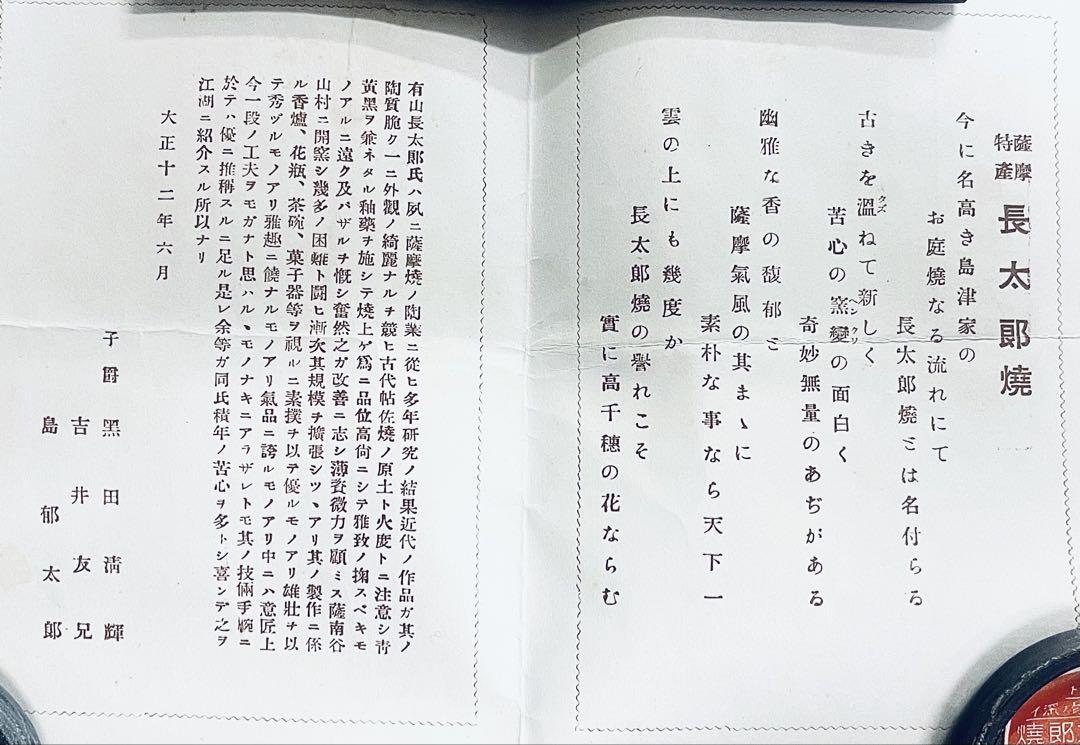 薩摩特產 長太郎燒
今に名高き島津家の
お庭燒なる流れにて
長太郎燒とは名付らる
古きを溫ねて新しく
クズ
苦心の窯變の面白く
ヘンクリ
奇妙無量のあぢがある
幽雅な香の馥郁と
薩摩氣風の其まゝに
素朴な事なら天下一
雲の上にも幾度か
長太郎燒の譽れこそ
實に高千穗の花ならむ
有山長太郎氏ハ夙ニ薩摩燒ノ陶業ニ從ヒ多年硏究ノ結果近代ノ作品ガ其ノ
陶質脆ク一ニ外觀ノ綺麗ナルヲ競ヒ古代帖佐燒ノ原土ト火度トニ注意シ靑
黃黑ヲ兼ネタル釉藥ヲ施シテ燒上ゲ爲ニ品位高尙ニシテ雅致ノ掬スベキモ
ノアルニ遠ク及バザルヲ慨シ奮然之ガ改善ニ志シ薄資微力ヲ顧ミス薩南谷
山村ニ開窯シ幾多ノ困難ト鬪ヒ漸次其規模ヲ擴張シツヽアリ其ノ製作ニ係
ル香爐、花瓶、茶碗、菓子器等ヲ視ルニ素撲ヲ以テ優ルモノアリ雄壯ヲ以
テ秀ヅルモノアリ雅趣ニ饒ナルモノアリ氣品ニ誇ルモノアリ中ニハ意匠上
今一段ノ工夫ヲモガナト思ハルヽモノナキニアラザレトモ其ノ技倆手腕ニ
於テハ優ニ推稱スルニ足ル是レ余等ガ同氏積年ノ苦心ヲ多トシ喜ンデ之ヲ
江湖ニ紹介スル所以ナリ
大正十二年六月
子爵 黑田淸輝
吉井友兄
島郁太郎
燒郎